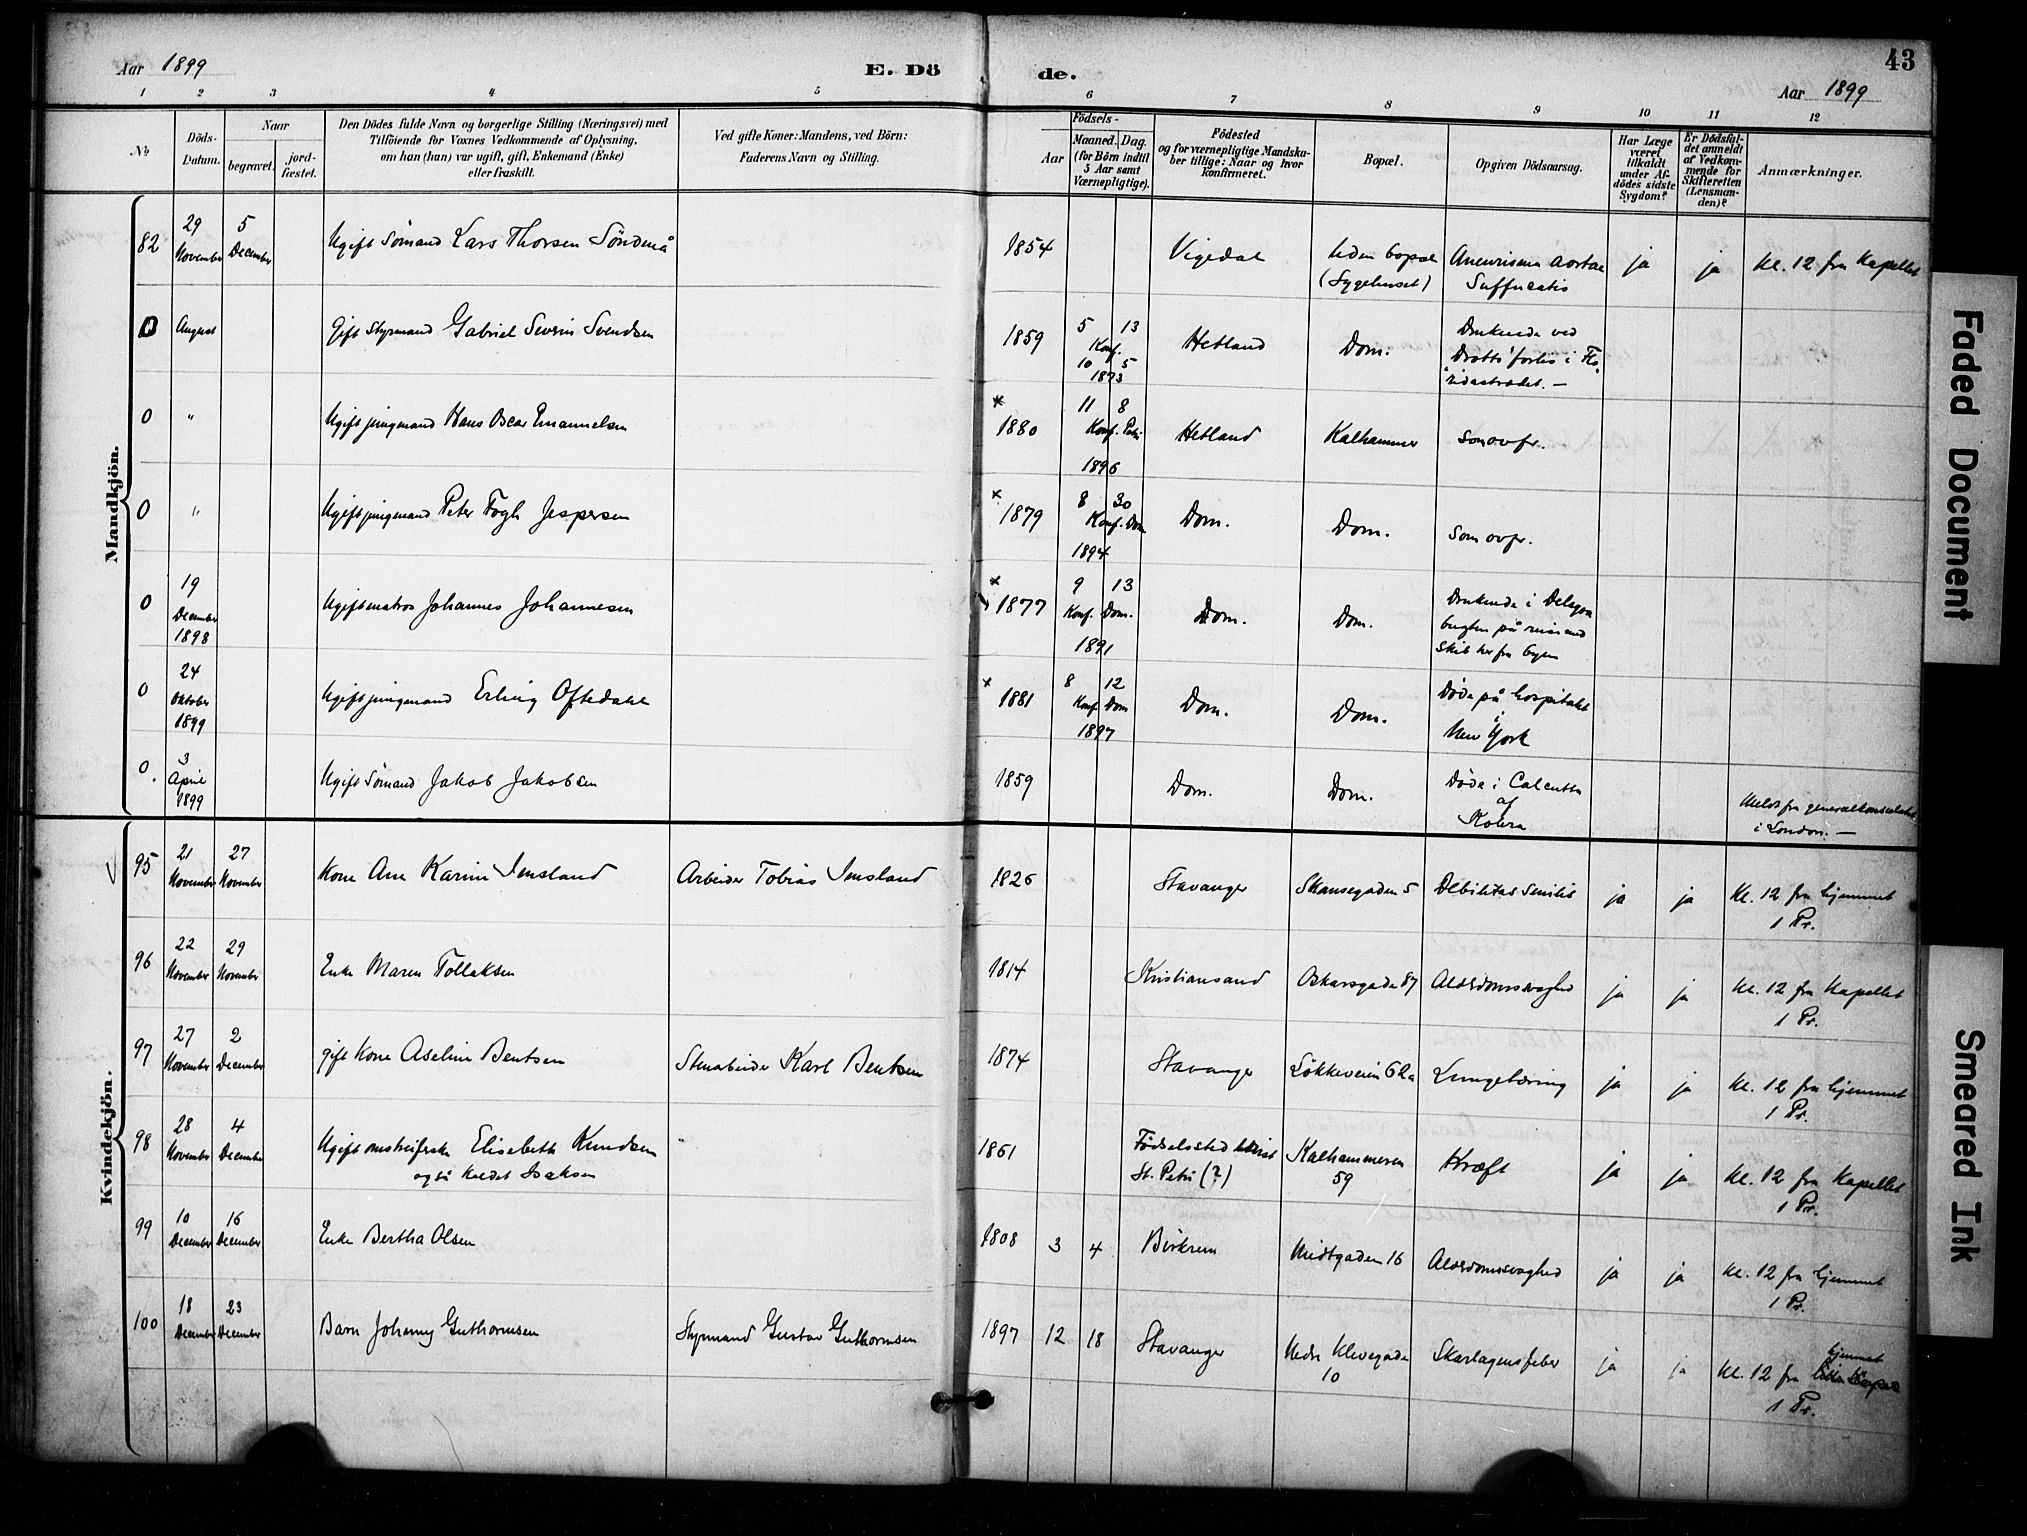 Aar 1899
E. Dö
de.
43
Aar 1899
1 2 3 4 5 6 7 8 9 10 11 12
№
Döds-
Datum.
Naar
begravet.
jord-
fæstet.
Den Dödes fulde Navn og borgerlige Stilling (Næringsvei) med
Tilföiende for Voxnes Vedkommende af Oplysning,
om han (hun) var ugift, gift, Enkemand (Enke)
eller fraskilt.
Ved gifte Koner: Mandens, ved Börn:
Faderens Navn og Stilling.
Födsels-
Aar
Maaned. Dag.
(for Börn indtil
5 Aar samt
Værnepligtige).
Födested
og for værnepligtige Mandska-
ber tillige: Naar og hvor
konfirmeret.
Bopæl.
Opgiven Dödsaarsag.
Har Læge
været
tilkaldt
under Af-
dödes sidste
Sygdom?
Er Dödsfal-
det anmeldt
af Vedkom-
mende for
Skifteretten
(Lensman-
den)?
Anmærkninger.
Mandkjön.
82 29 November 5 December Ugift Sømand Lars Thorsen Søndenå 1854 Vigedal Uden bopæl (Sygehuset) Aneurisma aortae Suffucatio ja ja Kl. 12 fra Kapellet
0 August Gift Styrmand Gabriel Severin Svendsen 1859 5 13 Konf. 10 5 1873 Hetland Dom. Druknede ved "Drotts" forlis i Flo- ridastrædet. —
0 " Ugift jungmand Hans Oscar Emanuelsen × 1880 11 8 Konf. Petri 1896 Hetland Kalhammer som ovfr.
0 " Ugift jungmand Peter Fogh Jespersen × 1879 8 30 Konf. Dom 1894 Dom. Dom. som ovfr.
0 19 December 1898 Ugift matros Johannes Johannesen × 1877 9 13 Konf. Dom. 1891 Dom. Dom. Druknede i Delagoa bugten på reise med skib her fra byen
0 24 Oktober 1899 Ugift jungmand Erling Oftedahl × 1881 8 12 Konf. Dom 1897 Dom. Dom. Døde på hospitalet i New York
0. 3 April 1899 Ugift Sømand Jakob Jakobsen 1859 Dom. Dom. Døde i Calcutta af Kolera Meldt fra generalkonsulatet i London. —
Kvindekjön.
95 21 November 27 November Kone Ane Karine Imsland Arbeider Tobias Imsland 1826 Stavanger Skansegaden 5 Debilitas senilis ja ja Kl. 12 fra hjemmet 1 Pr.
96 22 November 29 November Enke Maren Tollaksen 1814 Kristiansand Oskarsgade 87 Alderdomssvaghed ja ja Kl. 12 fra Kapellet 1 Pr.
97 27 November 2 December gift Kone Aseline Bentsen Stenarbeider Karl Bentsen 1874 Stavanger Løkkeveien 62a Lungetæring ja ja Kl. 12 fra hjemmet 1 Pr.
98 28 November 4 December Ugift omstreiferske Elisabeth Knudsen også kaldet Isaksen 1861 Fødselssted St. Petri (?) Kalhammeren 59 Kræft ja ja Kl. 12 fra Kapellet 1 Pr.
99 10 December 16 December Enke Bertha Olsen 1808 3 4 Birkrem Midtgaden 16 Alderdomssvaghed ja ja Kl. 12 fra hjemmet 1 Pr.
100 18 December 23 December Barn Johanny Guthormsen Styrmand Gustav Guthormsen 1897 12 18 Stavanger Nedre Klevegade 10 Skarlagensfeber ja ja Kl. 12 fra hjemmet 1 Pr.
Faded Document
Smeared Ink